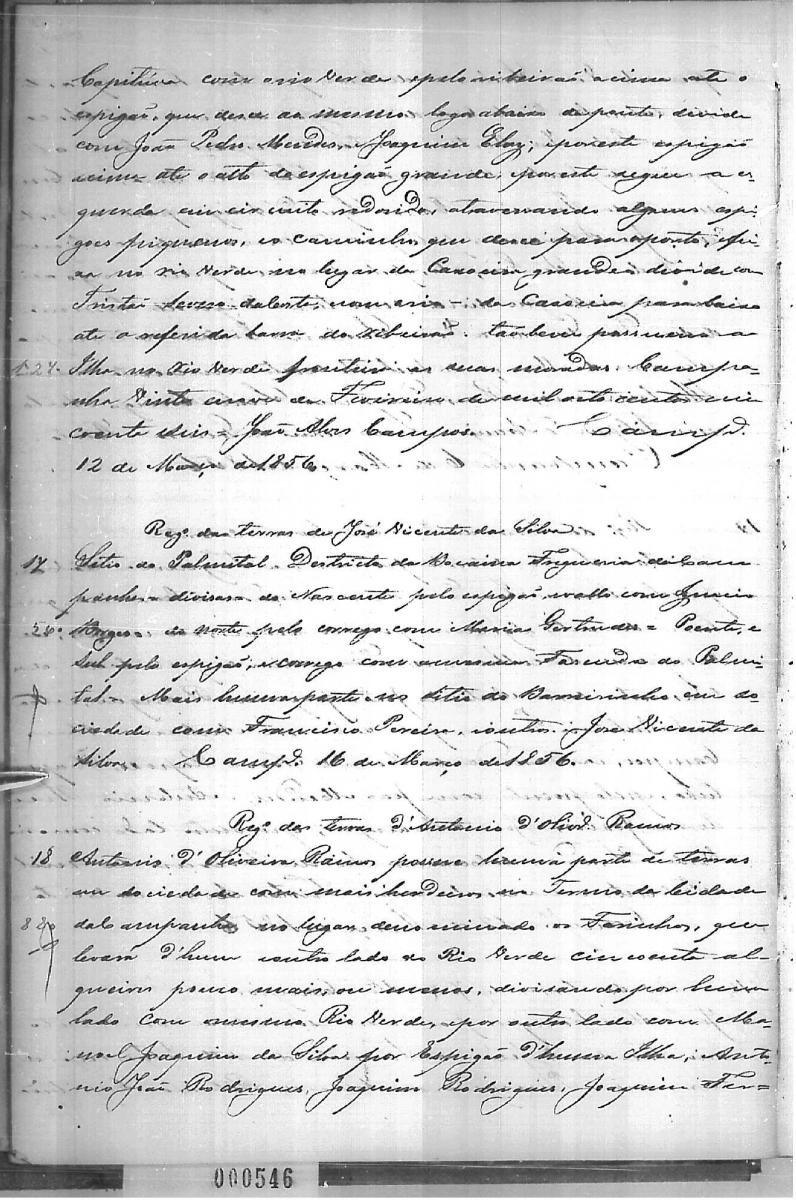 Capituva com o rio Verde e pelo ribeirão acima até o
espigão, que desce ao mesmo logo abaixo da ponte, divide
com João Pedro Mendes, Joaquim Eloy; e por este espigão
acima até o alto do espigão grande, e por este segue a es-
querda em circuito redondo, atravessando alguns espi-
gões piquenos, e o caminho que desce para a ponte,
no rio Verde no lugar da Caxoeira grande e divide com
Tristão e com o rio da Caxoeira para baixo
até o referida barra do ribeirão. Tão bem possuem a
Ilha no Rio Verde fronteira as suas moradas. Campa-
nha Vinte e nove de Fevereiro de mil oito centos e cin
coenta e seis - João Alves Campos. Camp.ª
12 de Março de 1856.
Reg.º das terras de José Vicente da Silva
17 Sitio do Palmital Districto da Bocaina Freguesia da Cam
panha - divisa do Nascente pelo espigão e vallo com Ignacio
Borges - do norte pelo corrego com Maria Gertrudes = Poente, e
Sul pelo espigão, e corrego com a mesma Fazenda do Palmi-
tal - Mais huma parte no sitio do Barreirinho, em so
ciedade com Francisco Pereira, e outros. José Vicente da
Silva. Camp.ª 16 de Março de 1856.
Reg.º das terras d'Antonio d'Olivr.ª Ramos
18 Antonio d'Oliveira Ramos possue huma parte de terras
em sociedade com mais herdeiros, no Termo da Cidade
da Campanha no lugar denominado os Farinhos, que
levará d'hum e outro lado do Rio Verde cincoenta al-
queires pouco mais, ou menos, divisando por hum
lado com o mesmo Rio Verde, e por outro lado com Ma-
noel Joaquim da Silva por Espigão d'huma Ilha, Anto-
nio João Rodrigues, Joaquim Rodrigues, Joaquim Fer-
000546